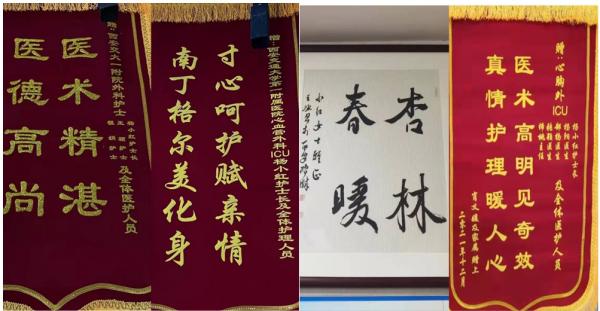 赠:西安交大一附院外科护士
杨小红护士长
及全体医护人员
医术精湛
医德高尚
赠:西安交通大学第一附属医院心血管外科ICU杨小红护士长及全体护理人员
寸心呵护赋亲情
南丁格尔美化身
杏林
春暖
小红女士雅正
赠:心胸外ICU
杨小红护士长
杨阳医生
及全体医护人员
医术高明见奇效
真情护理暖人心
及家属赠上
二零二一年十二月